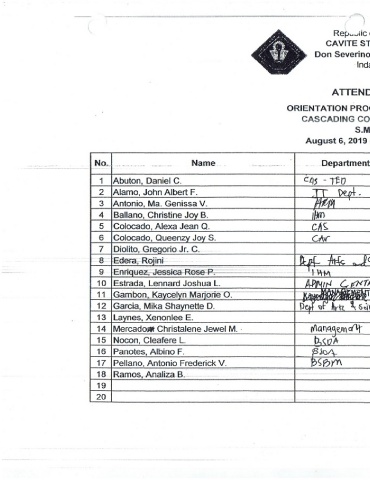 Republic
CAVITE ST
Don Severino
Inda
ATTEND
ORIENTATION PROG
CASCADING CO
S.M
August 6, 2019
No. Name Department
1 Abuton, Daniel C. CAS - TED
2 Alamo, John Albert F. IT Dept.
3 Antonio, Ma. Genissa V. HRM
4 Ballano, Christine Joy B. IHM
5 Colocado, Alexa Jean Q. CAS
6 Colocado, Queenzy Joy S. CAS
7 Diolito, Gregorio Jr. C.
8 Edera, Rojini Dept Arts and
9 Enriquez, Jessica Rose P. IHM
10 Estrada, Lennard Joshua L. ADMIN CENTR
11 Gambon, Kaycelyn Marjorie O. MANAGEMENT
12 Garcia, Mika Shaynette D. Dept of Arts &
13 Laynes, Xenonlee E.
14 Mercado Christalene Jewel M. Management
15 Nocon, Cleafere L.
16 Panotes, Albino F.
17 Pellano, Antonio Frederick V. BSBM
18 Ramos, Analiza B.
19
20